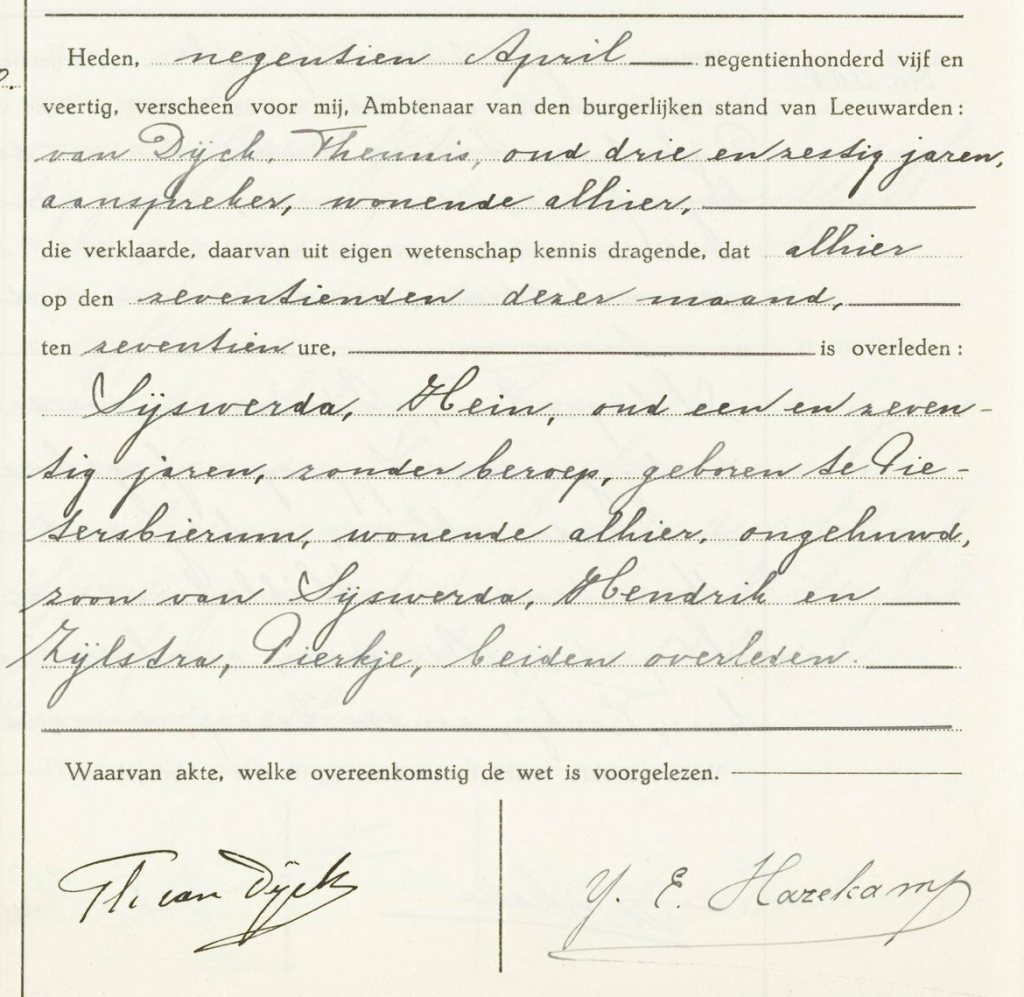 Heden, negentien April negentienhonderd vijf en
veertig, verscheen voor mij, Ambtenaar van den burgerlijken stand van Leeuwarden:
van Dijck, Theunis, oud drie en zestig jaren,
aanspreker, wonende alhier,
die verklaarde, daarvan uit eigen wetenschap kennis dragende, dat alhier
op den zeventienden dezer maand,
ten zeventien ure, is overleden:
Sijswerda, Hein, oud een en zeven-
tig jaren, zonder beroep, geboren te Pie-
tersbierum, wonende alhier, ongehuwd,
zoon van Sijswerda, Hendrik en
Zijlstra, Pierkje, beiden overleden.
Waarvan akte, welke overeenkomstig de wet is voorgelezen.
Th. van Dijck Y. E. Hazekamp